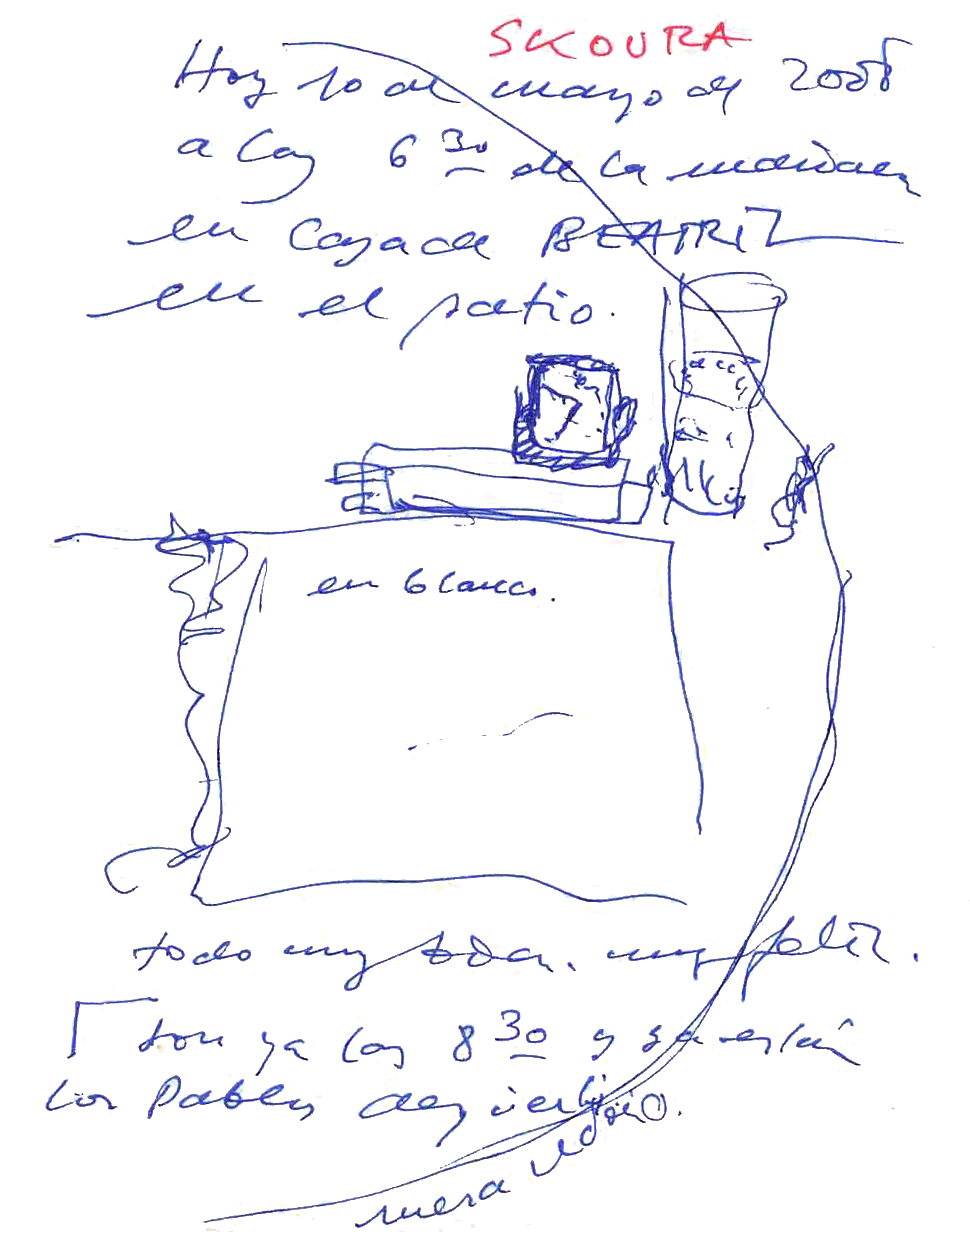 SKOURA
Hoy 10 de mayo de 2008
a las 6 30 de la mañana
en Casa de BEATRIZ
en el patio.
en blanco.
todo muy muy feliz.
Son ya las 8 30 y ya están
los Pables
mesa